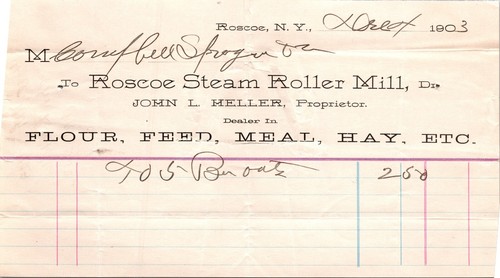 Roscoe, N. Y., 1903
M Campbell Sprague
To Roscoe Steam Roller Mill, Dr.
JOHN L. HELLER, Proprietor.
Dealer In
FLOUR, FEED, MEAL, HAY, ETC.
5 Bu oats 2 50